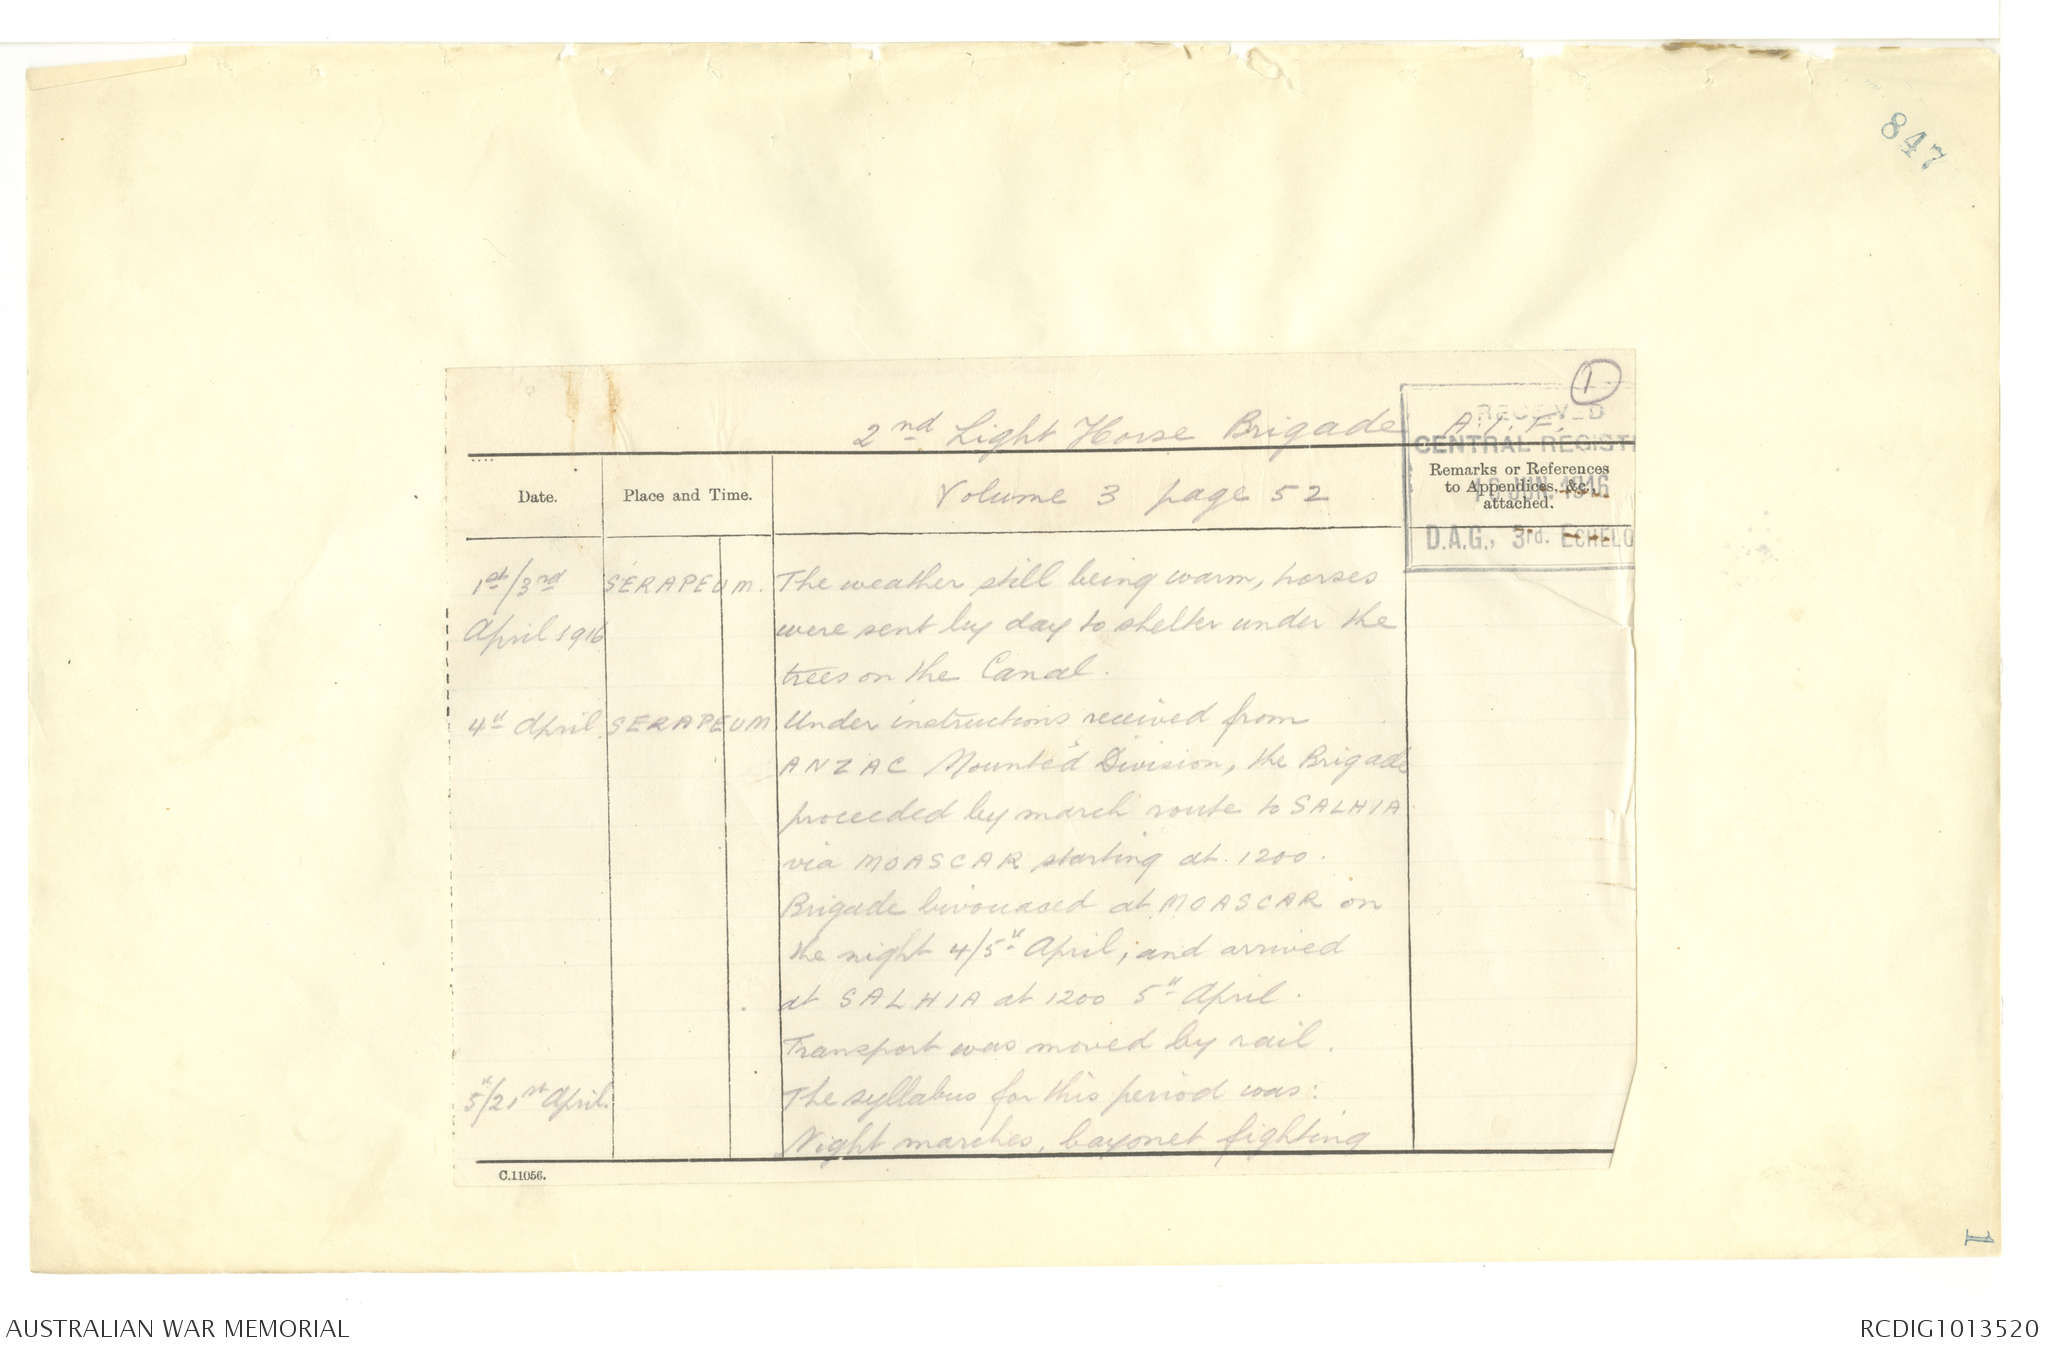 847
1
2nd Light Horse Brigade A.I.F.
RECEIVED
CENTRAL REGISTR
16 JUN. 1916
D.A.G., 3rd. ECHELO
Date.
Place and Time.
Volume 3 page 52
Remarks or References
to Appendices, &c.,
attached.
1st/3rd SERAPEUM. The weather still being warm, horses
April 1916 were sent by day to shelter under the
trees on the Canal.
4th April. SERAPEUM Under instructions received from
ANZAC Mounted Division, the Brigade
proceeded by march route to SALHIA
via MOASCAR starting at 1200.
Brigade bivouaced at MOASCAR on
the night 4/5th April, and arrived
at SALHIA at 1200 5th April.
Transport was moved by rail.
5th/21st April. The syllabus for this period was:
Night marches, bayonet fighting
C.11056.
1
AUSTRALIAN WAR MEMORIAL
RCDIG1013520